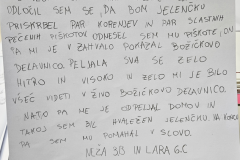 ODLOČIL SEM SE, DA BOM JELENČKU
PRISKRBEL PAR KORENJEV IN PAR SLASTNIH
PEČENIH PIŠKOTOV. ODNESEL SEM MU PIŠKOTE, ON
PA MI JE V ZAHVALO POKAZAL BOŽIČKOVO
DELAVNICO. PELJALA SVA SE ZELO
HITRO IN VISOKO IN ZELO MI JE BILO
VŠEČ VIDETI V ŽIVO BOŽIČKOVO DELAVNICO.
NATO PA ME JE ODPELJAL DOMOV IN
TAKOJ SEM BIL HVALEŽEN JELENČKU. NA KONCU
PA SEM MU POMAHAL V SLOVO.
NEŽA 3B IN LARA G.C